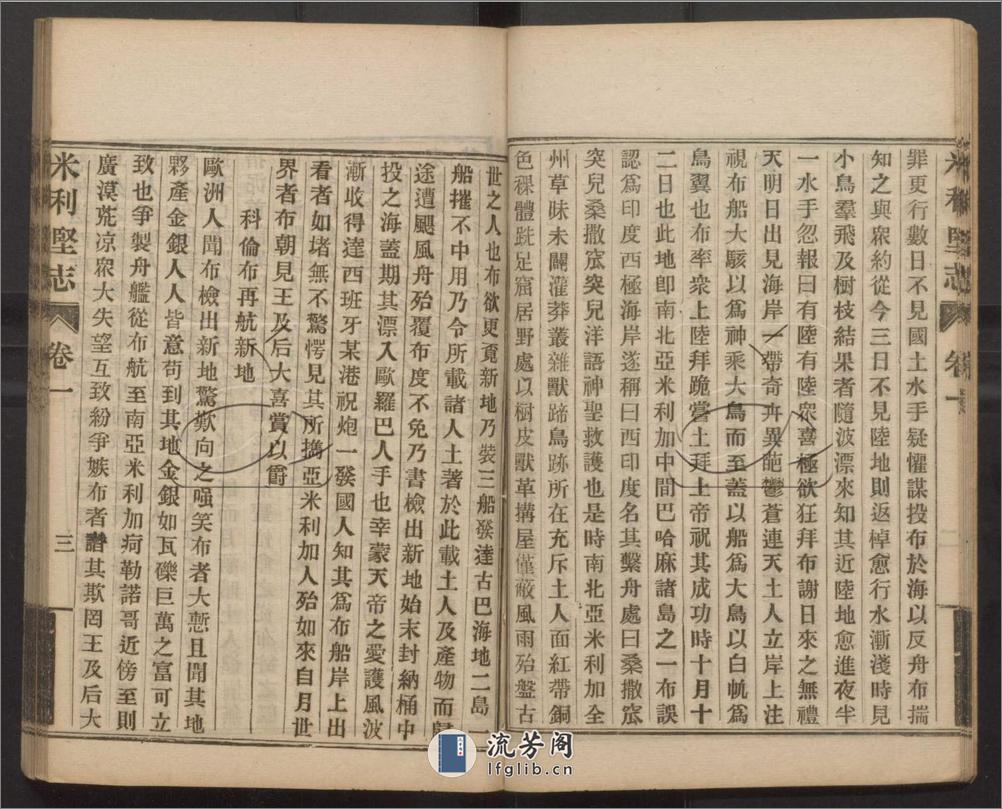 罪更行數日不見國土水手疑懼謀投布於海以反舟布揣
知之與衆約從今三日不見陸地則返棹愈行水漸淺時見
小鳥羣飛及樹枝結果者隨波漂來知其近陸地愈進夜半
一水手忽報曰有陸有陸衆喜極欲狂拜布謝日來之無禮
天明日出見海岸一帶奇卉異葩鬱蒼連天土人立岸上注
視布船大駭以爲神乘大鳥而至蓋以船爲大鳥以白帆爲
鳥翼也布率衆上陸拜跪嘗土拜上帝祝其成功時十月十
二日也此地卽南北亞米利加中間巴哈麻諸島之一布誤
認爲印度西極海岸遂稱曰西印度名其繫舟處曰桑撒窊
突兒桑撒窊突兒洋語神聖救護也是時南北亞米利加全
州草昧未闢灌莽叢雜獸蹄鳥跡所在充斥土人面紅帶銅
色裸體跣足窟居野處以樹皮獸革搆屋僅蔽風雨殆盤古
米利堅志
卷一
二
世之人也布欲更覓新地乃裝三船發達古巴海地二島一
船摧不中用乃令所載諸人土著於此載土人及產物而歸
途遭颶風舟殆覆布度不免乃書檢出新地始末封納桶中
投之海蓋期其漂入歐羅巴人手也幸蒙天帝之愛護風波
漸收得達西班牙某港祝炮一發國人知其爲布船岸上出
看者如堵無不驚愕見其所擕亞米利加人殆如來自月世
界者布朝見王及后大喜賞以爵
科倫布再航新地
歐洲人聞布檢出新地驚歎向之嗤笑布者大慙且聞其地
夥產金銀人人皆意苟到其地金銀如瓦礫巨萬之富可立
致也爭製舟艦從布航至南亞米利加疴勒諾哥近傍至則
廣漠荒凉衆大失望互致紛爭嫉布者譖其欺罔王及后大
米利堅志
卷一
三
流芳阁
lfglib.cn